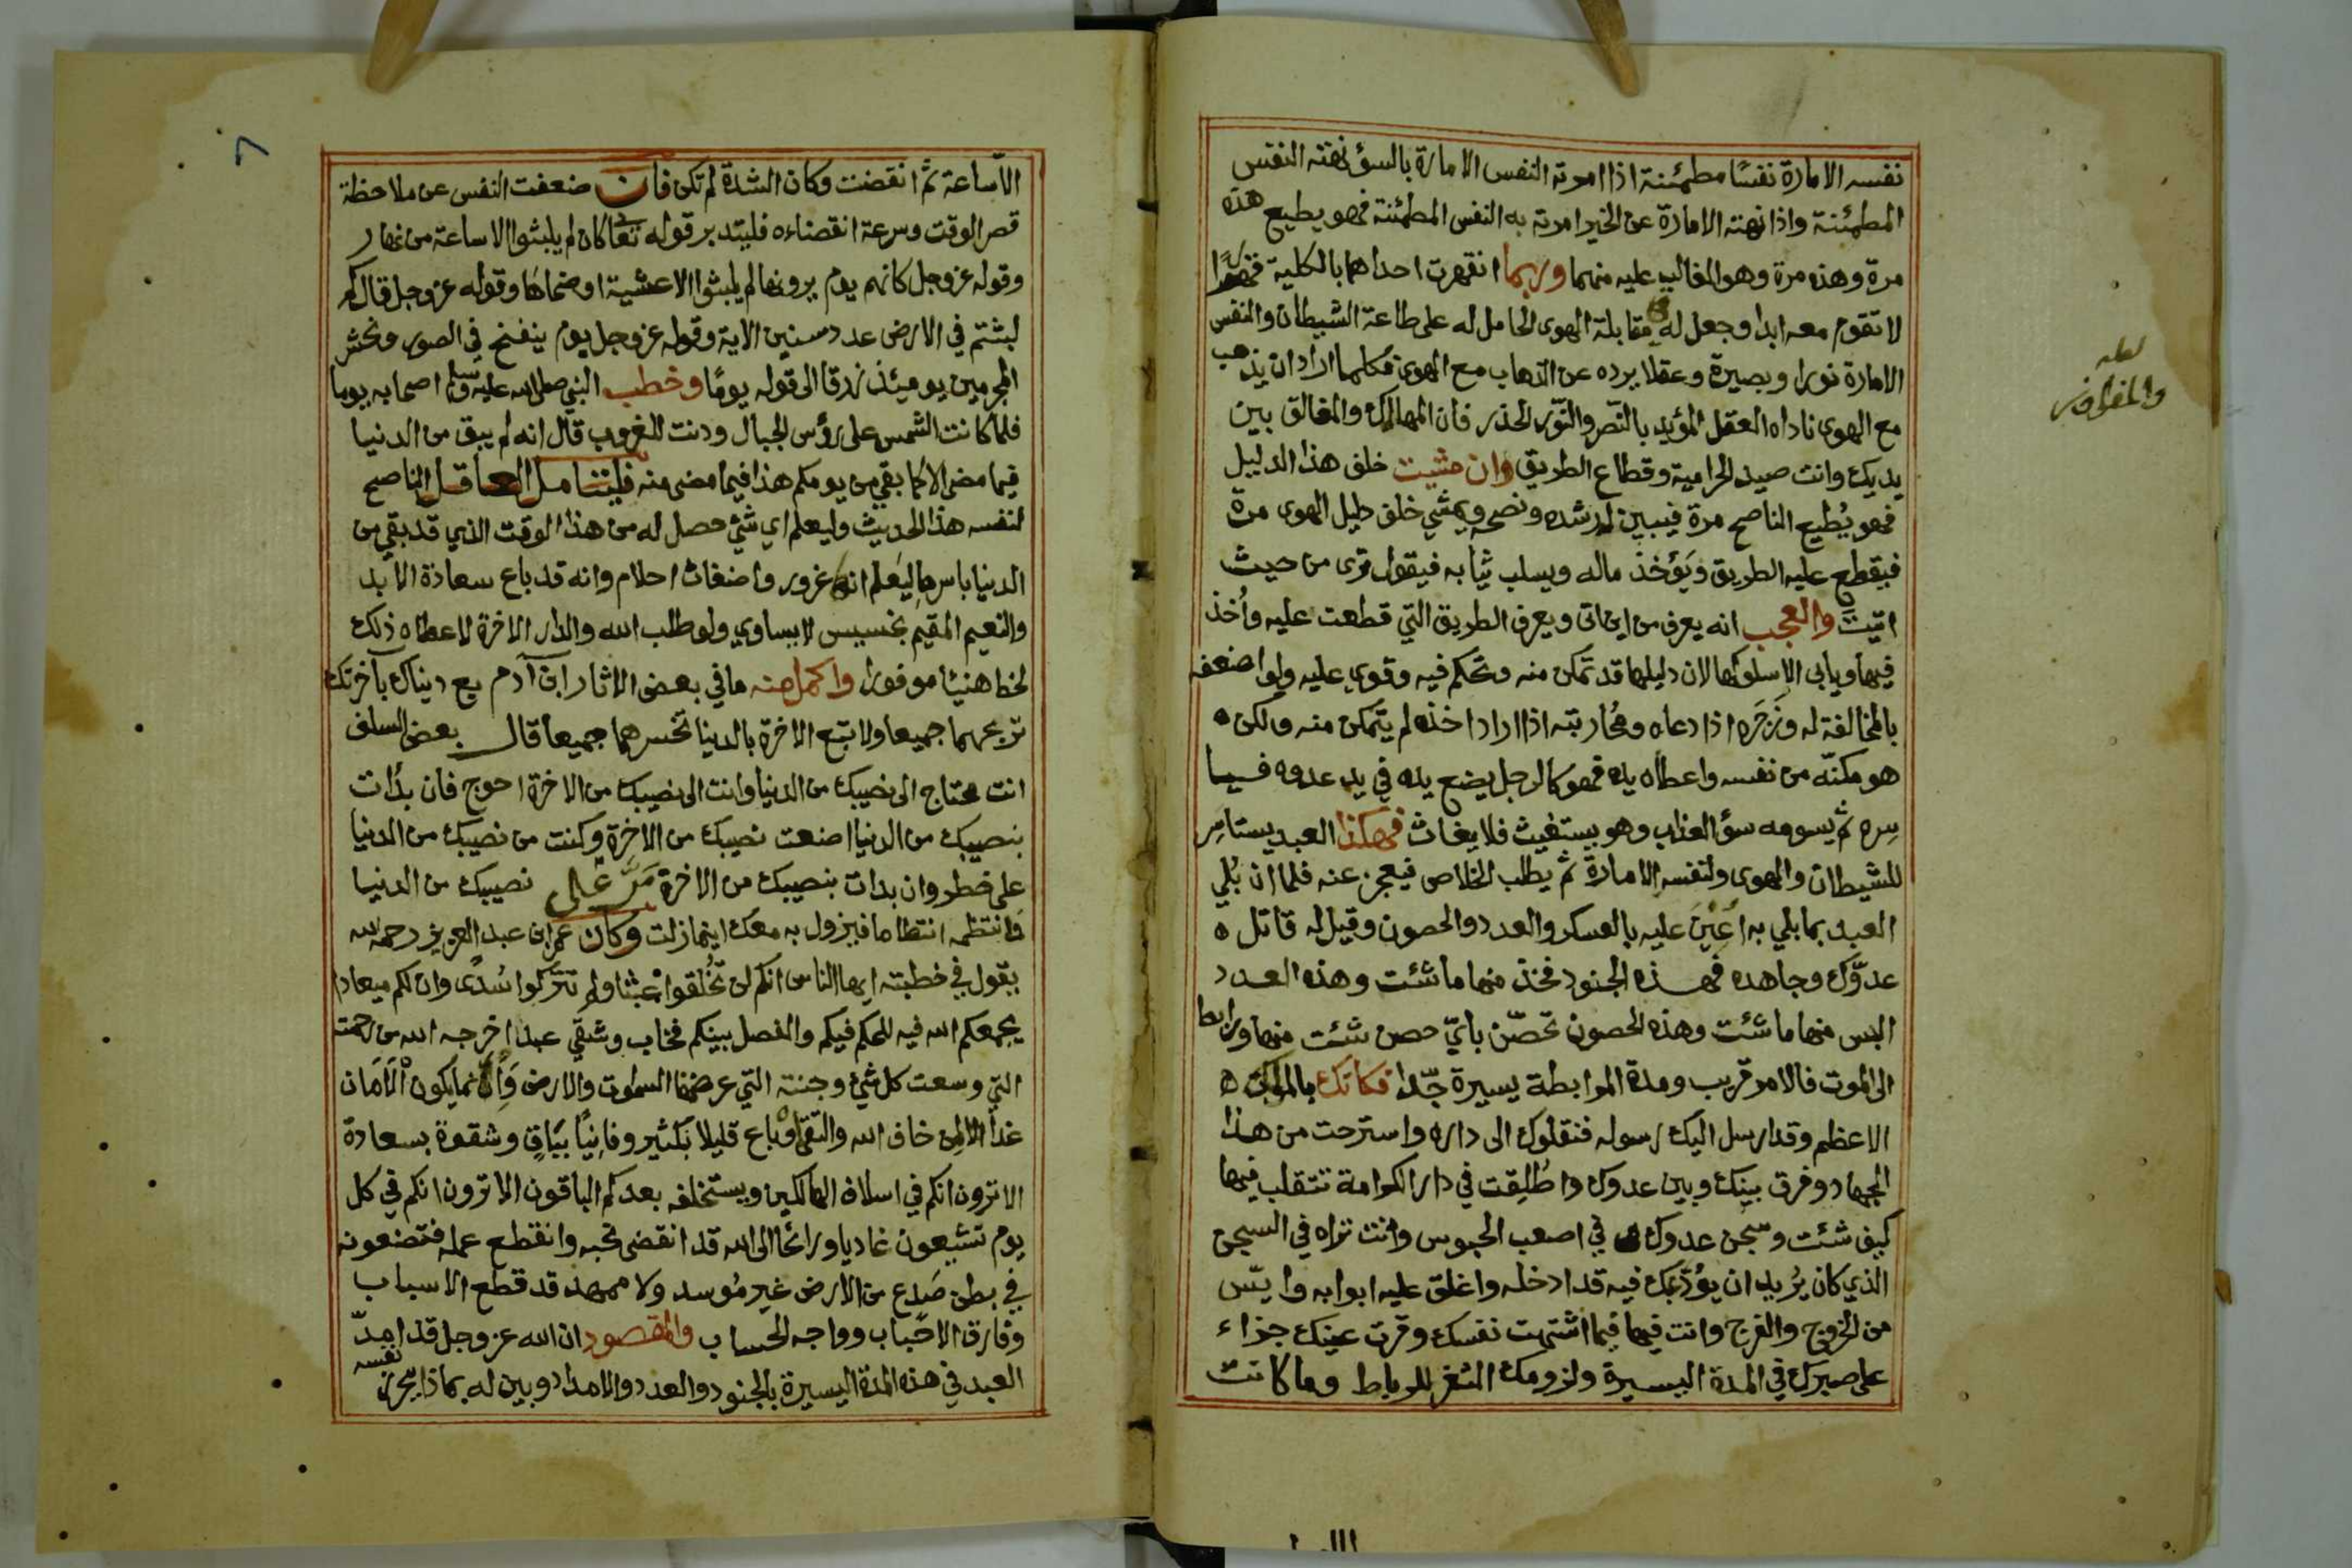 نفسه الامارة نفسًا مطمئنة اذا امرته النفس الامارة بالسؤ نهته النفس
المطمئنة واذا نهته الامارة عن الخير امرته به النفس المطمئنة فهو يطيع هذه
مرة وهذه مرة وهو الغالب عليه منهما وربما انقهرت احداهما بالكلية قهرًا
لا تقوم معه ابدا وجعل له مقابلة الهوى الحامل له على طاعة الشيطان والنفس
الامارة نورا وبصيرة وعقلا يرده عن الذهاب مع الهوى فكلما اراد ان يذهب
مع الهوى ناداه العقل المؤيد بالنّصر والنّور الحذر فان المهالك والمغالق بين
لعله
والمفاوز
يديك وانت صيد الحرامية وقطاع الطريق وان مشيت خلف هذا الدليل
فهو يُطيع الناصح مرة فيبين له رشده ونصحه ويمشي خلف دليل الهوى مرة
فيقطع عليه الطريق ويَؤخذ ماله ويسلب ثيابه فيقول ترى من حيث
اتيت والعجب انه يعرف من اين اتى ويعرف الطريق التي قطعت عليه واُخذ
فيها ويابى الا سلوكها لان دليلها قد تمكن منه وتحكم فيه وقوي عليه ولو اضعفه
بالمخالفة له وزَجَره اذا دعاه ومُحاربته اذا اراد اخذه لم يتمكن منه ولكن ه
هو مكنّه من نفسه واعطاه يده فهو كالرجل يضع يده في يد عدوه فيا
سره ثم يسومه سؤ العذاب وهو يستغيث فلا يغاث فهكذا العبد يستاسِر
للشيطان والهوى ولنفسه الامارة ثم يطلب الخلاص فيعجز عنه فلما ان بُلي
العبد بما بلي به اُعِينَ عليه بالعسكر والعدد والحصون وقيل له قاتل ه
عدوّك وجاهده فهذه الجنود فخذ منها ما شئت وهذه العدد
البس منها ما شئت وهذه الحصون تحصّن بايّ حصن شئت منها ورابط
الى الموت فالامر قريب ومدة المرابطة يسيرة جدّا فكانك بالملك ه
الاعظم وقد ارسل اليك رسوله فنقلوك الى داره واسترحت من هذا
الجهاد وفرق بينك وبين عدوك واطُلِقت في دار الكرامة تتقلب فيها
كيف شئت وسجن عدوك في اصعب الحبوس وانت تراه في السجن
الذي كان يُريد ان يؤدعك فيه قد ادخله واغلق عليه ابوابه وايّس
من الخروج والفرج وانت فيها فيما اشتهت نفسك وقرت عينك جزاء
على صبرك في المدة اليسيرة ولزومك الثغر للرباط وما كانت
الا ساعة ثم انقضت وكان الشدة لم تكن فان ضعفت النفس عن ملاحظة
قصر الوقت وسرعة انقضاءه فليتدبر قوله تعالى كان لم يلبثوا الا ساعة من نهار
وقوله عز وجل كانهم يوم يرونها لم يلبثوا الا عشية او ضحاها وقوله عز وجل قال كم
لبثتم في الارض عدد سنين الاية وقوله عز وجل يوم ينفخ في الصور ونحشر
المجرمين يومئذ زرقا الى قوله يومًا وخطب النبي صلى الله عليه وسلم اصحابه يوما
فلما كانت الشمس على رؤس الجبال ودنت للغروب قال انه لم يبق من الدنيا
فيما مضى الا كما بقي من يومكم هذا فيما مضى منه فليتامل العاقل الناصح
لنفسه هذا الحديث وليعلم اي شئ حصل له من هذا الوقت الذي قد بقي من
الدنيا باسرها ليَعلم انه غرور واضغاث احلام وانه قد باع سعادة الابد
والنعيم المقيم بخسيس لا يساوي ولو طلب الله والدار الاخرة لاعطاه ذلك
لخط هنيئا موفورا واكمل منه ما في بعض الاثار ابن آدم بع دنياك بآخرتك
تربحهما جميعا ولا تبع الاخرة بالدنيا تخسرهما جميعا قال بعض السلف
انت محتاج الى نصيبك من الدنيا وانت الى نصيبك من الاخرة احوج فان بدات
بنصيبك من الدنيا اضعت نصيبك من الاخرة وكنت من نصيبك من الدنيا
على خطر وان بدات بنصيبك من الاخرة مَرَّ على نصيبك من الدنيا
فانتظمه انتظاما فيزول به معك اينما زلت وكان عمر ابن عبد العزيز رحمه الله
يقول في خطبته ايها الناس انكم لن تُخلقوا عبثا ولم تتركوا سُدًى وان لكم ميعادا
يجمعكم الله فيه للحكم فيكم والفصل بينكم فخاب وشقي عبد اخرجه الله من رحمته
التي وسعت كل شئ وجنته التي عرضها السموت والارض وانما يكون الامان
غدا لمن خاف الله والتقى وباع قليلا بكثير وفانِيًا بباقٍ وشقوة بسعادة
الا ترون انكم في اسلاف الهالكين ويستخلفه بعدكم الباقون الا ترون انكم في كل
يوم تشيعون غاديا ورائحا الى الله قد انقضى نحبه وانقطع عمله فتضعونه
في بطن صَدع من الارض غير مُوسد ولا ممهد قد قطع الاسباب
وفارق الاحباب وواجه الحساب والمقصود ان الله عز وجل قد امدّ
العبد في هذه المدة اليسيرة بالجنود والعدد والامداد وبين له بماذا يحرز نفسه